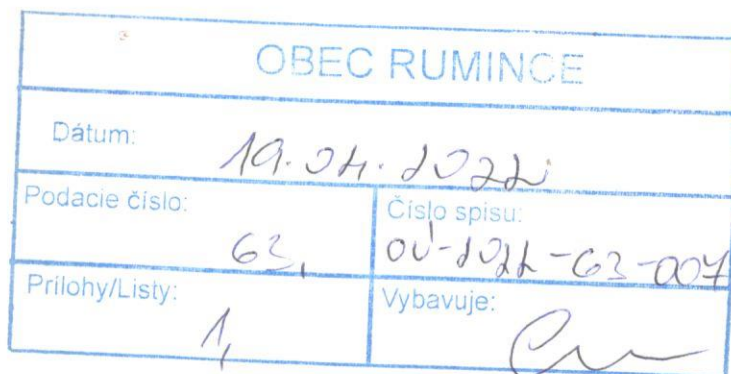 OBEC RUMINCE
Dátum: 19.04.2022
Podacie číslo: 63,
Číslo spisu: OÚ-2022-63-007
Prílohy/Listy: 1,
Vybavuje: